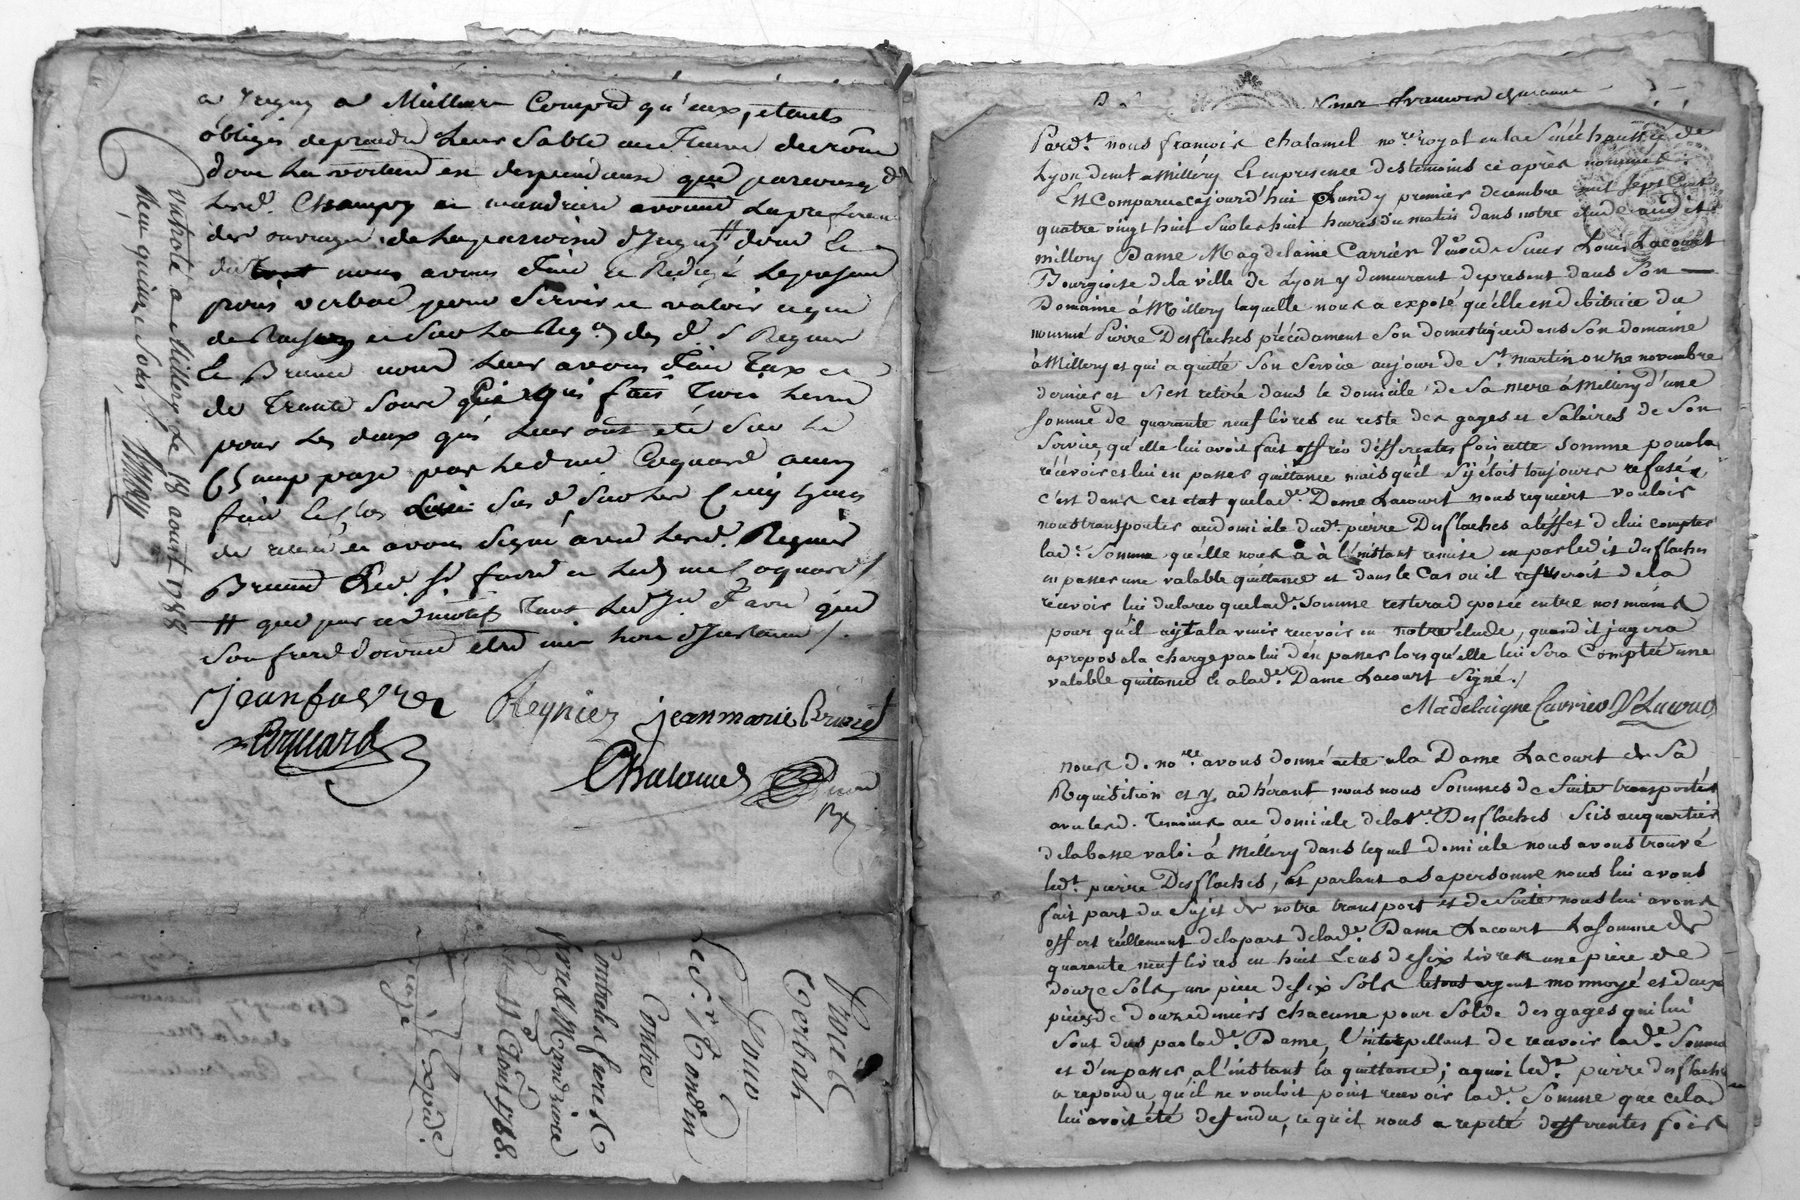 a a Millery Compris qu'eux, etants
obligés de prendre Leur Sable au fleuve du rône
dont La voiture est dispendieuse que
Led. Champoz
des ouvrages de La paroisse d'Irigny # dont Et
du tout nous avons fait et Redigé Le present
procès verbal pour Servir et valoir ce que
de Raison et Sur La Req.on des d. S. Regnier
Et Brunet nous Leur avons fait Taxe
de Trente Sous
pour Les deux qui Leur ont été Sur Le
Champ payé par Led. me Coquard ainsi
fait Et clos Sus d. Sur Les Cinq heures
de et avons Signé avec Lesd. Regnier
Brunet Led. Sr. favre et Led. me Coquard /
# que par ce motif Tant Led. Sr. Favre que
Son frere doivent etre mis hors d'Instance /.
Jean favre Regnier jean marie Brunet
Coquard
Chalamel
Controlé a Millery Le 18 aoust 1788
Reçu quinze Sols /.
Procès
Verbal
Pour
Les Srs. Tondin
Contre
Controlés freres
Nord Mandrione
11 Aoust 1788.
Expede.
Pard.t nous françois chalamel no.re royal en la Sénéchaussée de
Lyon demt. a Millery Et en presence des temoins ci après nommés :
Est Comparue ce jourd'hui Lundy premier decembre mil Sept Cent
quatre vingt huit Sur les huit heures du matin dans notre etude audit
millery Dame Magdelaine Carrier Veuve de Sieur Louis Lacourt
Bourgeoise de la ville de Lyon y demeurant de present dans Son —
Domaine à Millery laquelle nous a exposé qu'elle est debitrice du
nommé Pierre Desflaches précédament Son domestique dans Son domaine
à Millery et qui a quitté Son Service au jour de St. martin onze novembre
dernier et S'est retiré dans le domicile de Sa mere à Millery d'une
Somme de quarante neuf livres en reste des gages et Salaires de Son
Service, qu'elle lui avoit fait offrir differentes fois cette Somme pour la
récévoir et lui en passer quittance mais qu'il S'y étoit toujours refusé,
c'est dans cet etat que lad.e Dame Lacourt nous requiert vouloir
nous transporter au domicile dud.t pierre Desflaches à l'éffet de lui compter
lad.e Somme qu'elle nous a à l'instant remise en par ledit desflaches
en passer une valable quittance et dans le Cas ou il refuseroit de la
récevoir lui déclarer que lad.e Somme restera deposée entre nos mains
pour qu'il ayt a la venir recevoir en notre étude, quand il jugera
apropos a la charge par lui d'en passer lorsqu'elle lui Sera Comptée une
valable quittance et a lad.e Dame Lacourt Signé. /
Madelaigne Carrier Ve. Lacour
nous d. no.re avons donné acte a la Dame Lacourt de Sa
Requisition et y adhérant nous nous Sommes de Suite transportés
avec lesd. temoins au domicile de la Ve. Desflaches Scis au quartier
de la basse valoi à Millery dans lequel domicile nous avons trouvé
led.t pierre Desflaches, Et parlant a Sa personne nous lui avons
fait part du Sujet de notre transport et de Suite nous lui avons
offert réellement de la part de lad.e Dame Lacourt La Somme de
quarante neuf livres en huit Ecus de Six Livres une pièce de
douze Sols, un pièce de Six Sols le tout argent monnoyé et deux
pièces de douze deniers chacune pour Solde des gages qui lui
Sont dus par lad.e Dame, L'interpellant de recevoir lad.e Somme
et d'en passer a l'instant la quittance ; a quoi led.t pierre desflaches
a repondu qu'il ne vouloit point recevoir lad.e Somme que cela
lui avoit été deffendu, ce qu'il nous a repeté differentes fois